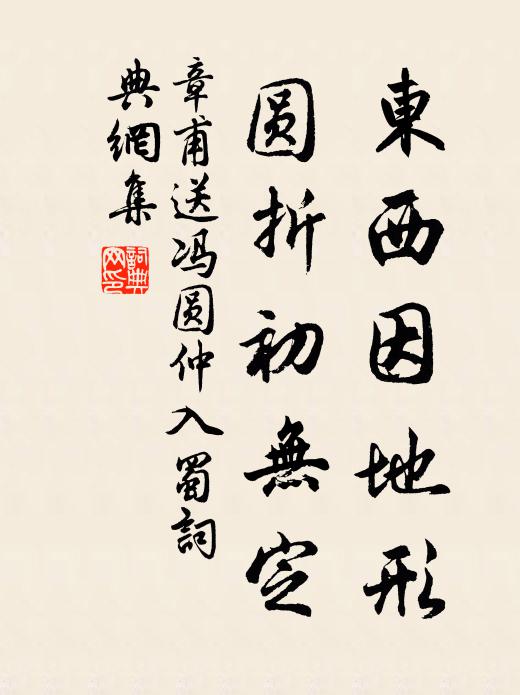 東西因地形
圆折初無定
章甫送冯圆仲入蜀詞
典網集
詞典
网印